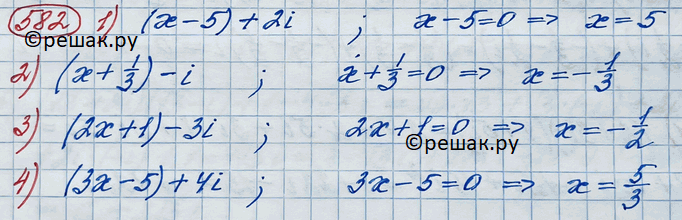 582 1) (x-5)+2i ; x-5=0 => x=5
©решак.ру
2) (x+1/3)-i ; x+1/3=0 => x=-1/3
3) (2x+1)-3i ; 2x+1=0 => x=-1/2
©решак.ру
4) (3x-5)+4i ; 3x-5=0 => x=5/3